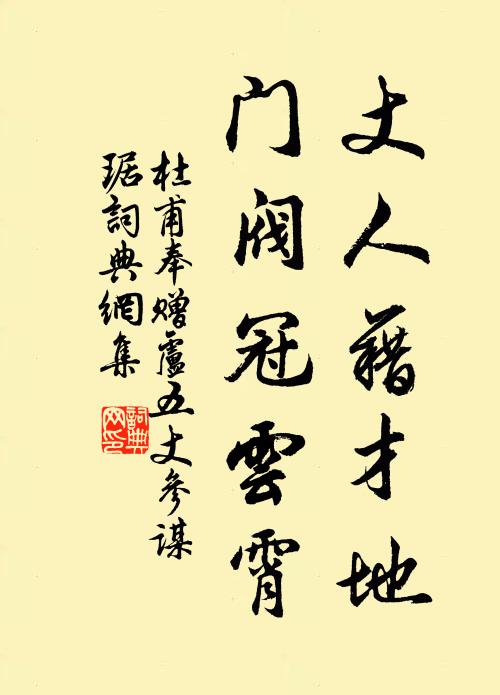 丈人藉才地
门阀冠雲霄
杜甫奉赠盧五丈参謀
琚詞典網集
詞典
网印